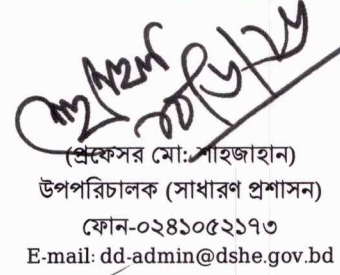 (প্রফেসর মো: শাহজাহান)
উপপরিচালক (সাধারণ প্রশাসন)
ফোন-০২৪১০৫২১৭৩
E-mail: dd-admin@dshe.gov.bd